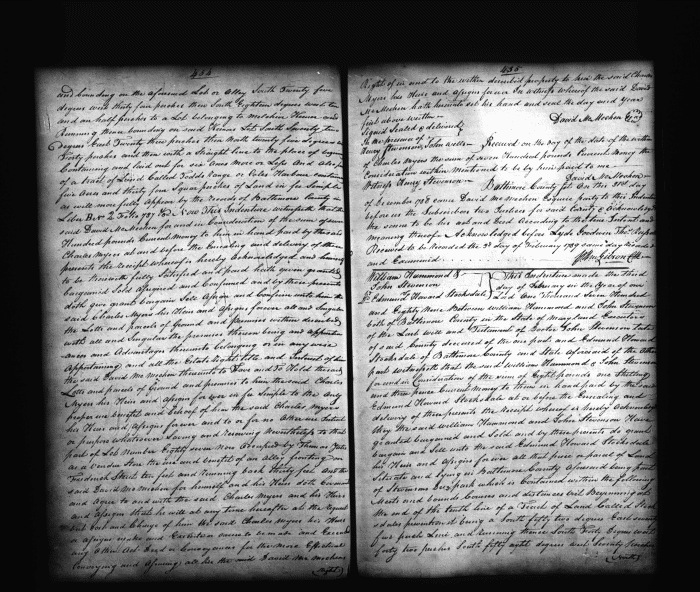 434
and bounding on the aforesaid Lot or Alley South Twenty five
degrees west thirty four perches then South Eighteen degrees west ten
and an half perches to a Lot belonging to Messrs. and
Running then bounding on said Lot South Seventy two
degrees East Twenty two perches then North twelve degrees
Sixty perches and then with a straight line to the place of beginning
Containing and laid out for six Acres more or less And also part
of a tract of Land Called Todds Range or Coles Harbour containing
five Acres and thirty four Square perches of Land in fee Simple
as will more fully appear by the records of Baltimore County in
Liber Folio 787 Now This Indenture witnesseth that the
said David McMechen for and in Consideration of the sum of seven
Hundred pounds Current Money to him in hand paid by the said
Charles Myers at and before the Ensealing and delivery of these
presents the receipt whereof is hereby acknowledged and himself
to be therewith fully satisfied and paid hath given granted
bargained Sold Aliened and Confirmed and by these presents
doth give grant bargain Sell Alien and Confirm unto him the
said Charles Myers his Heirs and Assigns forever all and Singular
the Lotts and parcels of Ground and premises within described
with all and Singular the premises thereon being and appurten
ances and Advantages thereunto belonging or in any wise
Appertaining and all the Estate right title and Interest of him
the said David McMechen thereunto to Have and To Hold the said
Lotts and parcels of Ground and premises to him the said Charles
Myers his Heirs and Assigns forever in fee Simple to the only
proper use benefit and behoof of him the said Charles Myers
his Heirs and Assigns forever and to or for no other use Intent
or purpose whatsoever Saving and reserving Nevertheless to that
part of Lot Number Eighty seven Now Occupied by Thomas Yates
as a Vendue Store the use and benefit of an alley fronting on
Frederick Street ten feet and Running back thirty feet And the
said David McMechen for himself and his Heirs doth Covenant
and Agree to and with the said Charles Myers and his Heirs
and Assigns that he will at any time hereafter at the Request
but Cost and Charge of him the said Charles Myers his Heirs
or Assigns make and Execute or cause to be made and Executed
any other Act Deed or Conveyance for the More Effectual
Conveying and Assuring all the said David McMechens
(Right)
435
Right of in and to the within described property to him the said Charles
Myers his Heirs and Assigns forever In witness whereof the said David
McMechen hath hereunto set his hand and seal the day and Year
first above written
Signed Sealed & delivered
In the presence of David McMechen
Henry Stevenson, John Wells Received on the day of the date of the within
of Charles Myers the sum of seven Hundred pounds Current Money the
Consideration within Mentioned to be by him paid to me
Witness Henry Stevenson David McMechen
Baltimore County Sct. On the 22nd day
of December 1788 came David McMechen Esquire party to this Indenture
before us the Subscribers two Justices for said County & Acknowledged
the same to be his act and Deed According to the true Intent and
meaning thereof Acknowledged before Lyde Goodwin
Received to be Recorded the 3d day of February 1789 same day Recorded
and Examined Wm Gibson Clk
William Hammond &
John Stevenson
To Edmund Howard Stocksdale This Indenture made the third
day of February in the Year of our
Lord One Thousand Seven Hundred
and Eighty Nine Between William Hammond and John Stevenson
both of Baltimore County in the State of Maryland Executors
of the Last will and Testament of Doctor John Stevenson late
of said County deceased of the one part and Edmund Howard
Stocksdale of Baltimore County and State aforesaid of the other
part witnesseth that the said William Hammond & John Stevenson
for and in Consideration of the sum of Eight pounds one shilling
and three pence Current Money to them in hand paid by the said
Edmund Howard Stocksdale at or before the Ensealing and
delivery of these presents the Receipt whereof is hereby acknowledged
they the said William Hammond and John Stevenson Have
granted bargained and Sold and by these presents do grant
bargain and Sell unto the said Edmund Howard Stocksdale
his Heirs and Assigns forever all that piece or parcel of Land
Situate and lying in Baltimore County Aforesaid being part
of Stevensons Deer park which is Contained within the following
Meets and bounds Courses and distances viz Beginning at
the end of the tenth line of a Tract of Land Called Stock
dales it being a South fifty two degrees East seventy
five perch Line and running thence South Forty Degrees west
forty two perches South fifty eight degrees west Seventy perches
(North)